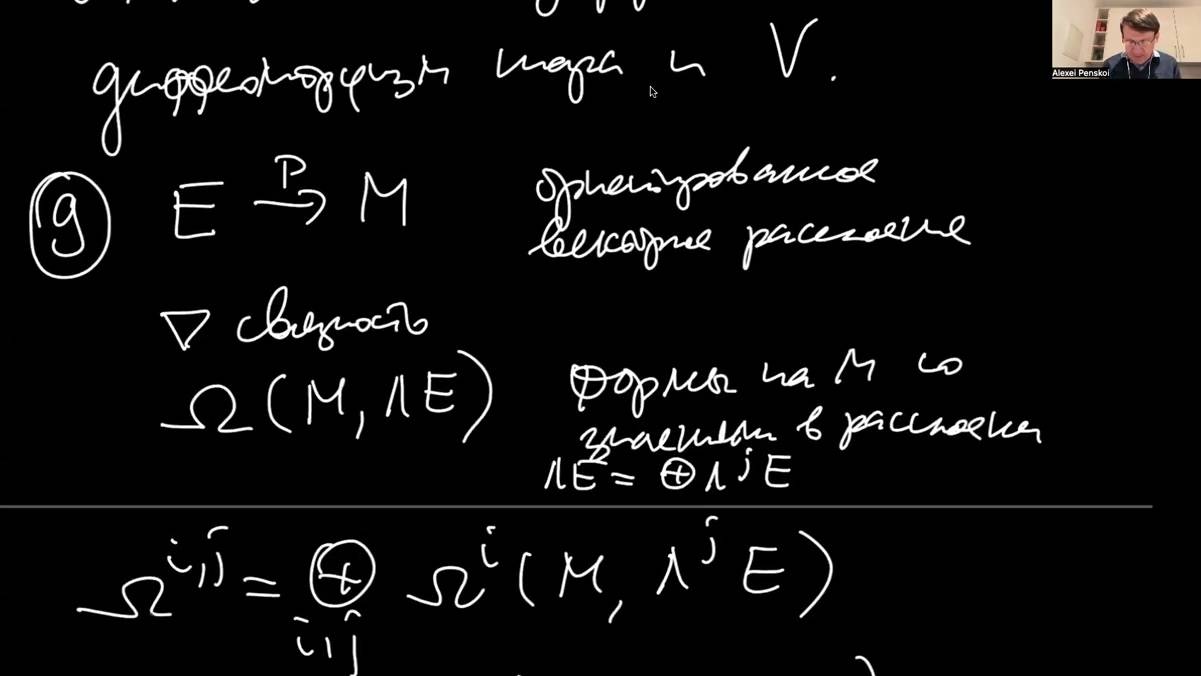 диффеоморфизм шара и V.
Alexei Penskoi
9 E →^P M ориентированное
векторное расслоение
∇ связность
Ω(M, ΛE) формы на M со
значениями в расслоении
ΛE = ⊕ Λ^j E
Ω^{i,j} = ⊕_{i,j} Ω^i(M, Λ^j E)